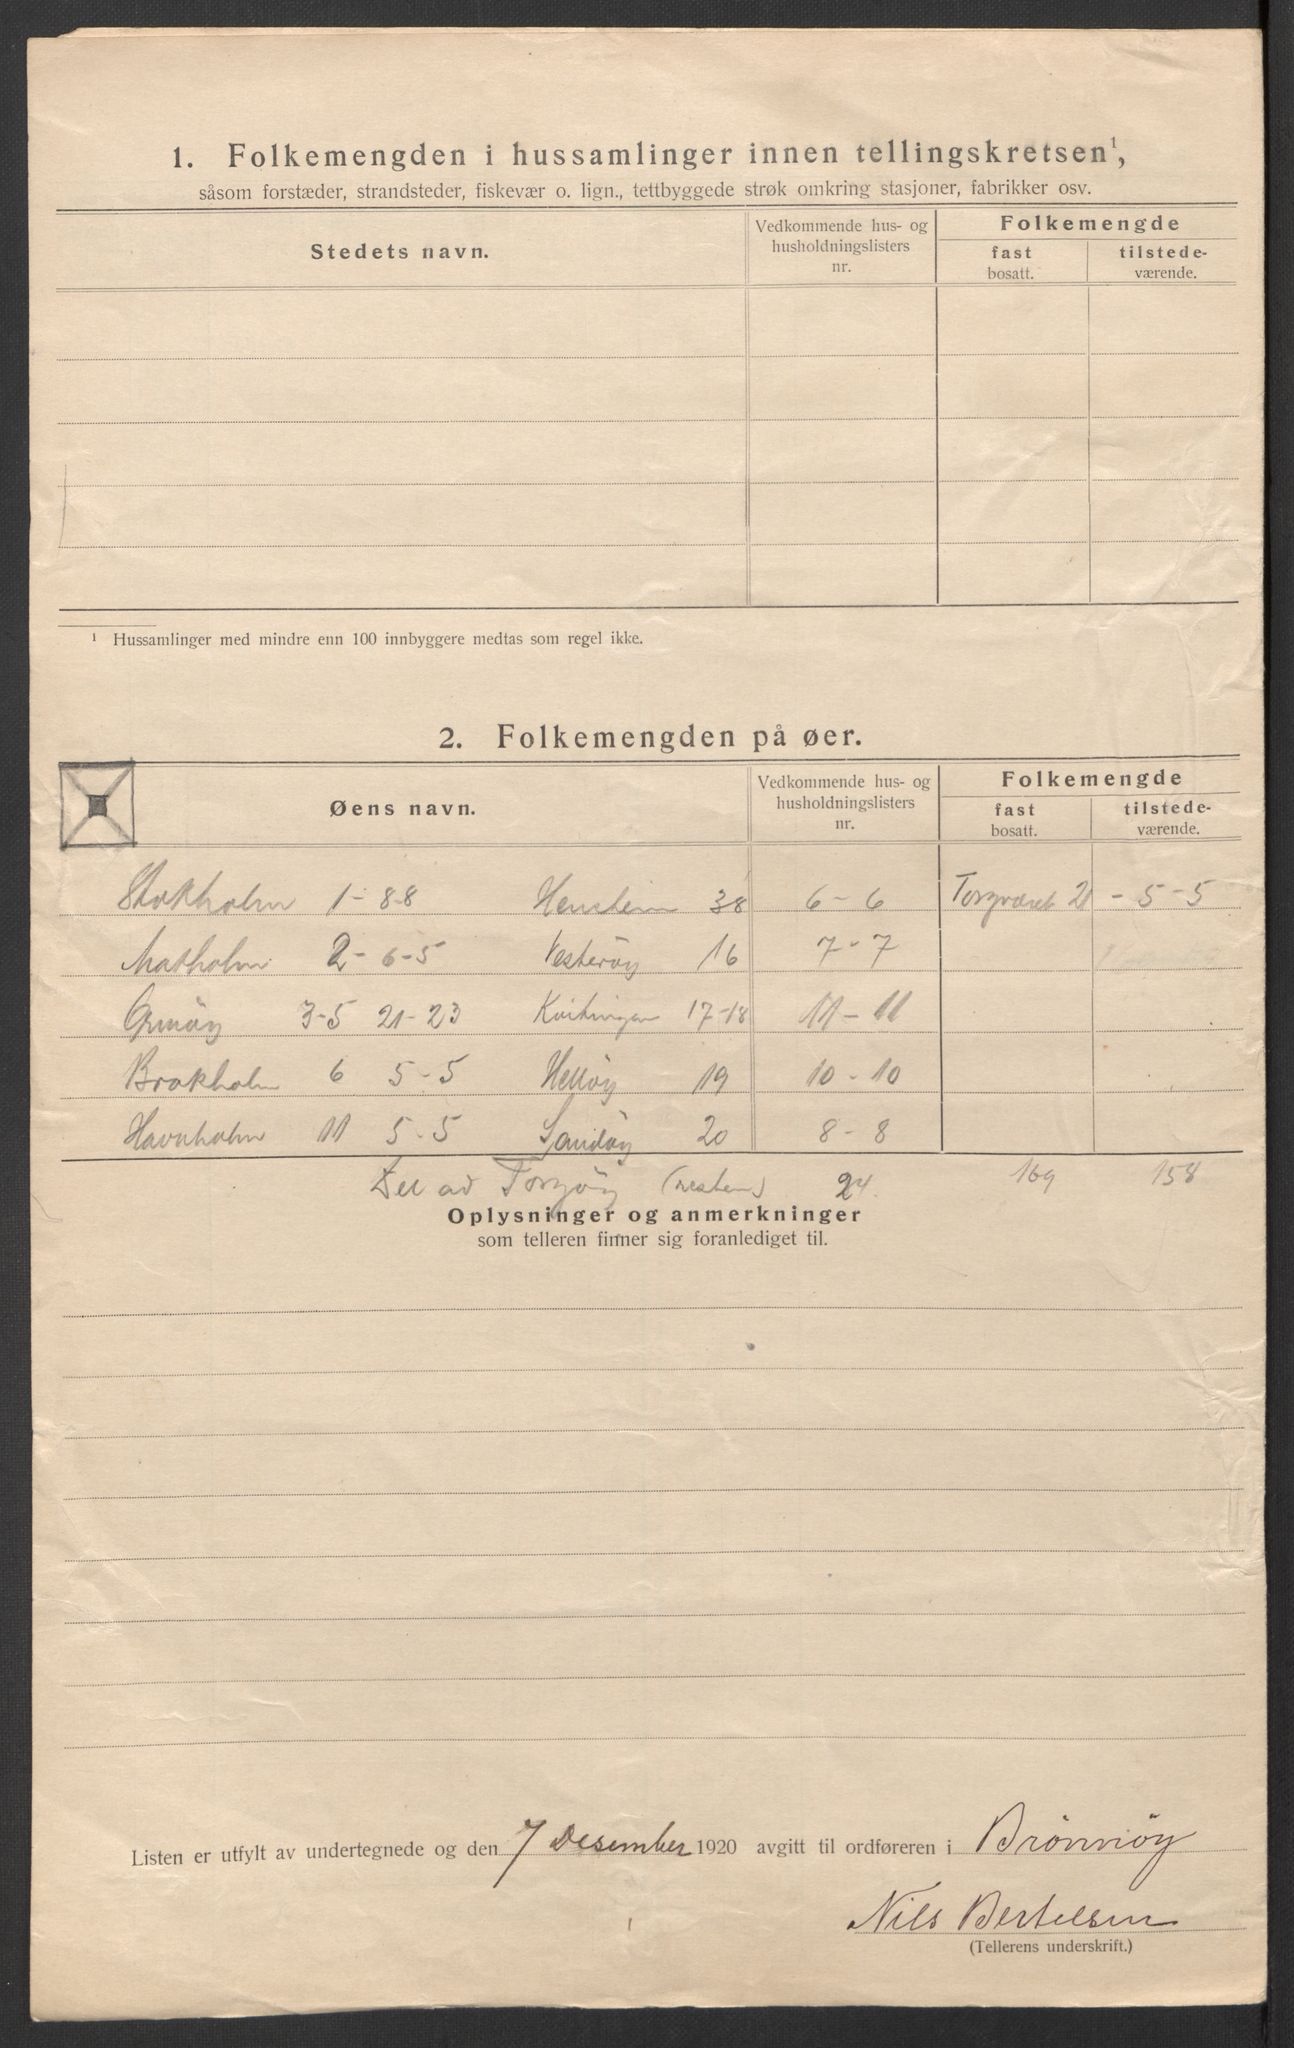 1. Folkemengden i hussamlinger innen tellingskretsen¹,
såsom forstæder, strandsteder, fiskevær o. lign., tettbyggede strøk omkring stasjoner, fabrikker osv.
Stedets navn.
Vedkommende hus- og husholdningslisters nr.
Folkemengde
fast bosatt.
tilstede-værende.
¹ Hussamlinger med mindre enn 100 innbyggere medtas som regel ikke.
2. Folkemengden på øer.
Øens navn.
Vedkommende hus- og husholdningslisters nr.
Folkemengde
fast bosatt.
tilstede-værende.
Stokholm 1-8-8 38 6-6 Torgværet 21 - 5-5
2-6-5 Vesterøy 16 7-7
Ormøy 3-5 21-23 Kvitingen 17-18 11-11
Brokholm 6 5-5 Helløy 19 10-10
Havnholm 11 5-5 Sandøy 20 8-8
Del av Torgøy (resten) 24. 169 158
Oplysninger og anmerkninger
som telleren finner sig foranlediget til.
Listen er utfylt av undertegnede og den 7 Desember 1920 avgitt til ordføreren i Brønnøy
Nils Bertelsen
(Tellerens underskrift.)